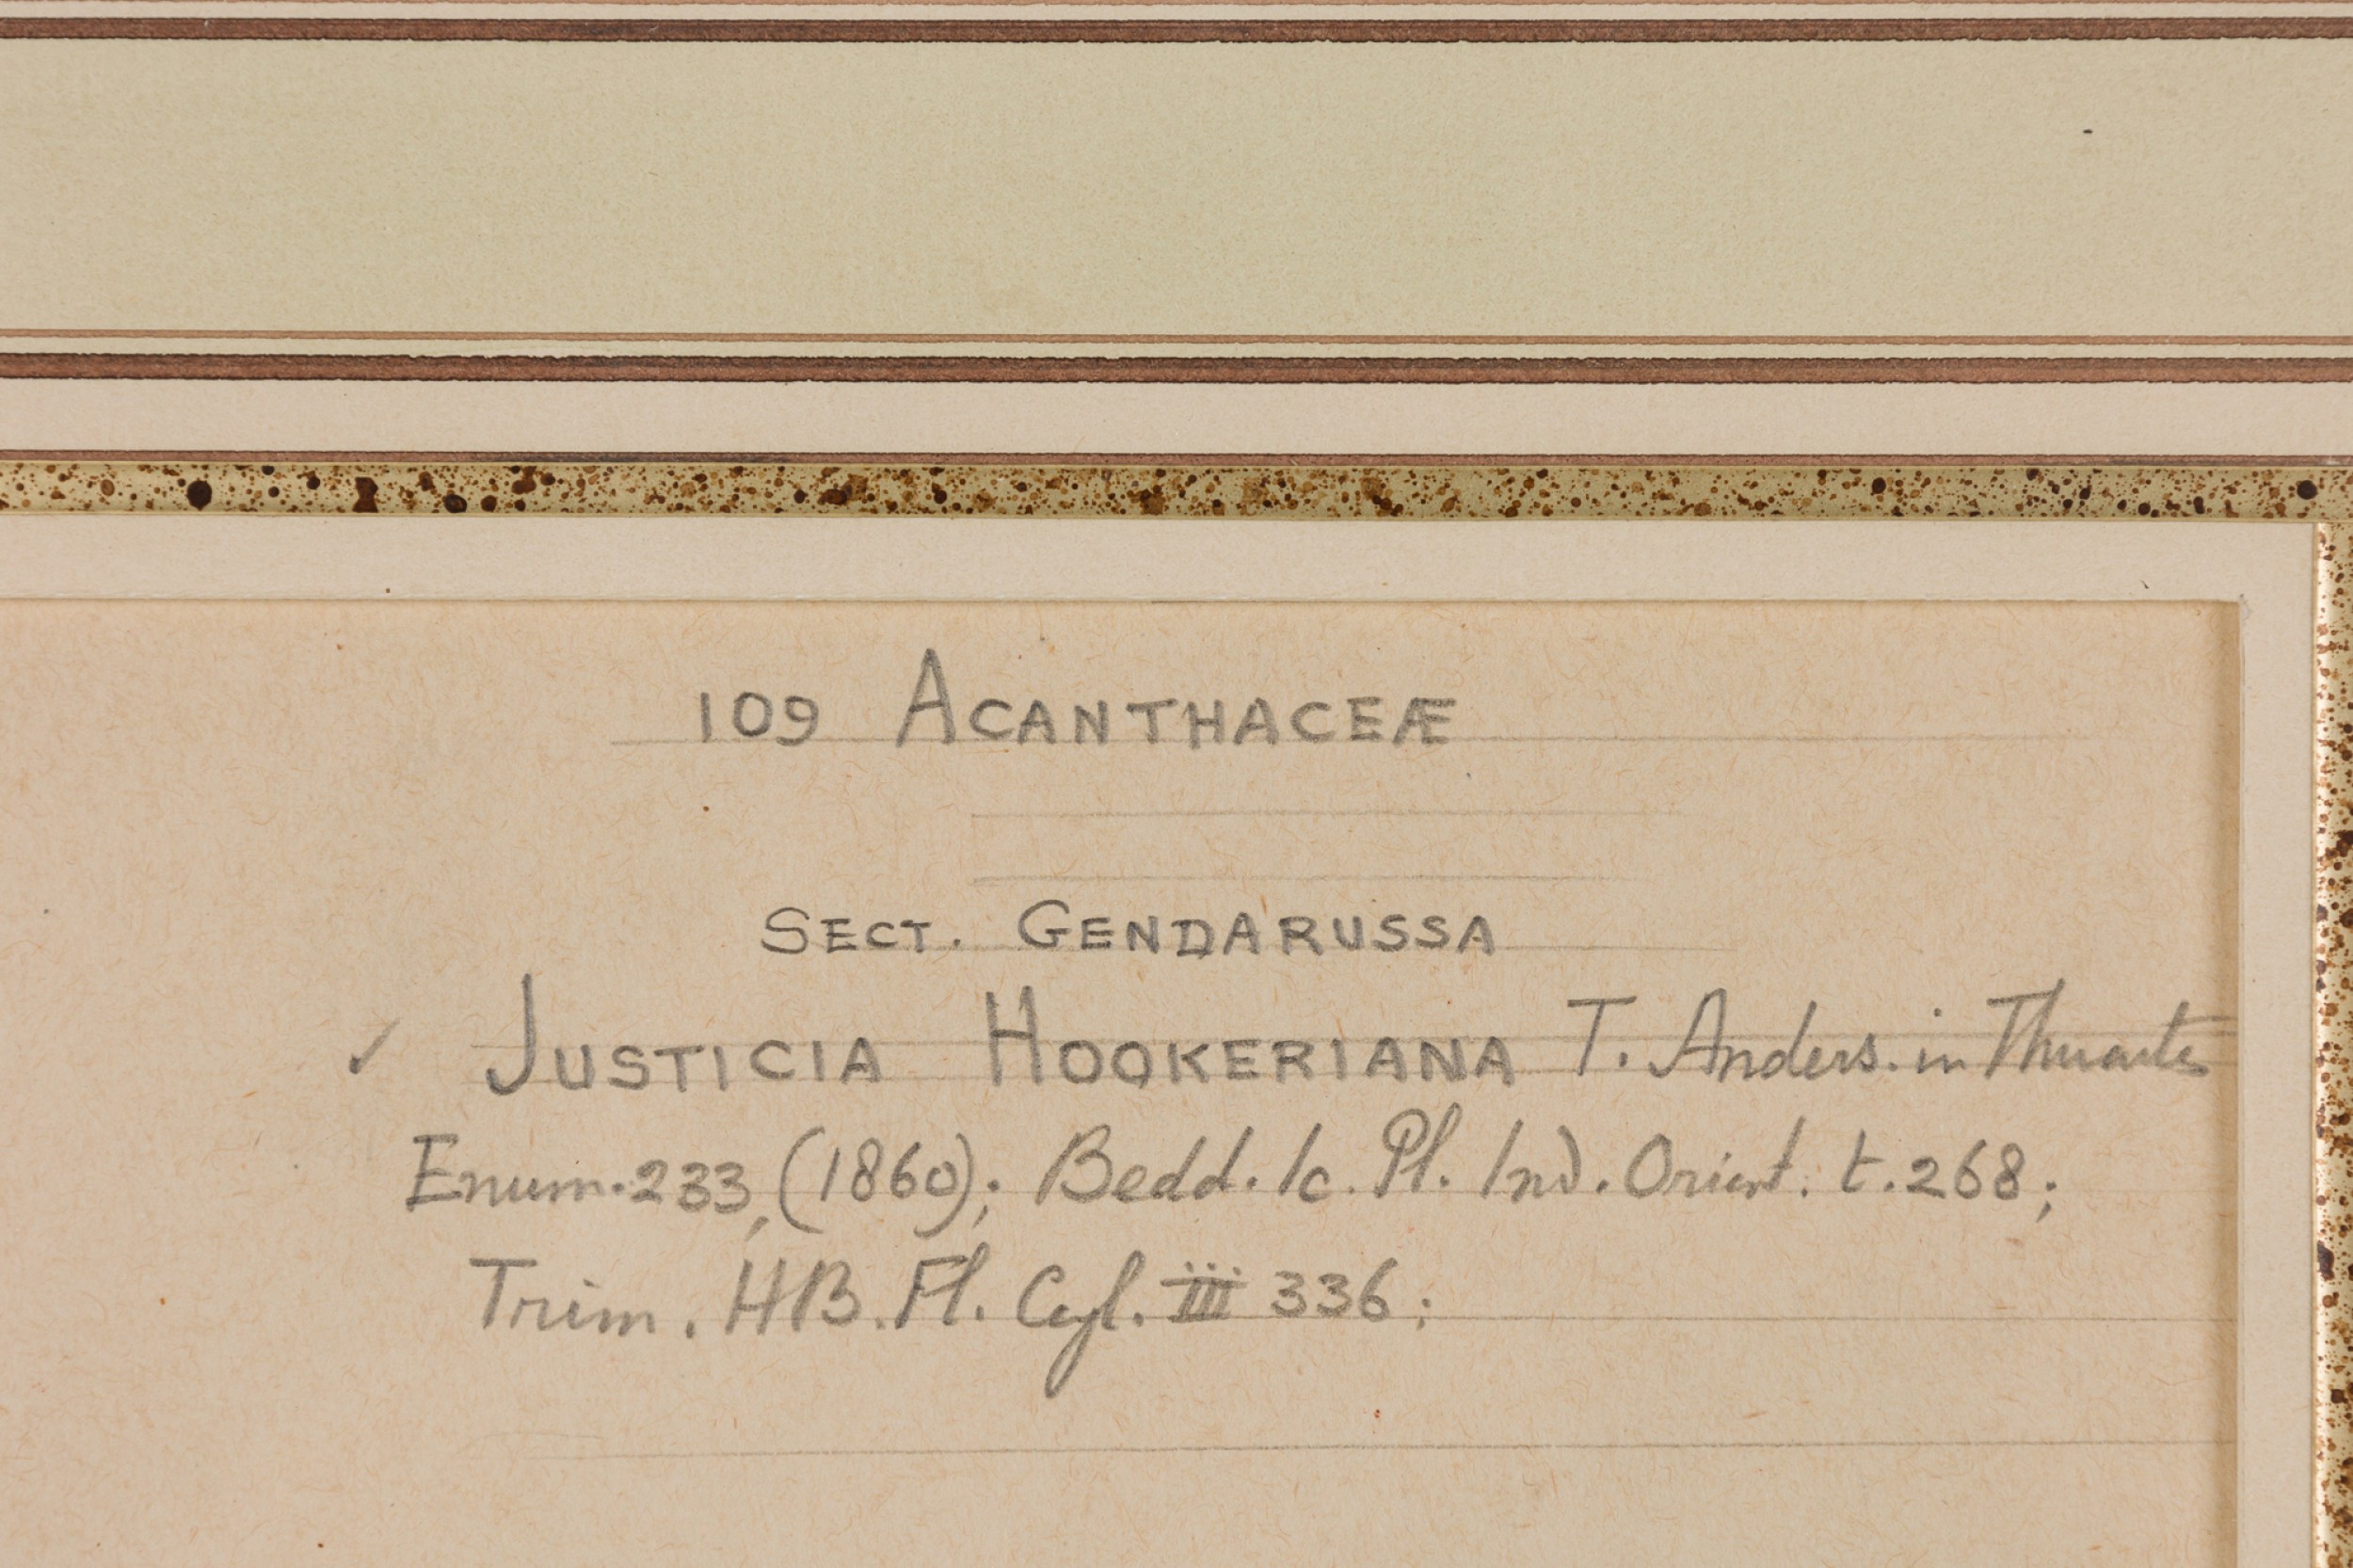 109 ACANTHACEÆ
SECT. GENDARUSSA
✓ JUSTICIA HOOKERIANA T. Anders. in Thwaites
Enum. 233, (1860); Bedd. Ic. Pl. Ind. Orient. t. 268;
Trim. HB. Fl. Ceyl. iii 336;